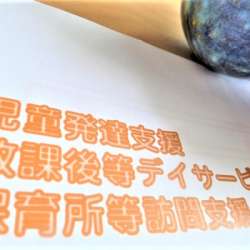 児童発達支援
放課後等デイサービ
保育所等訪問支援